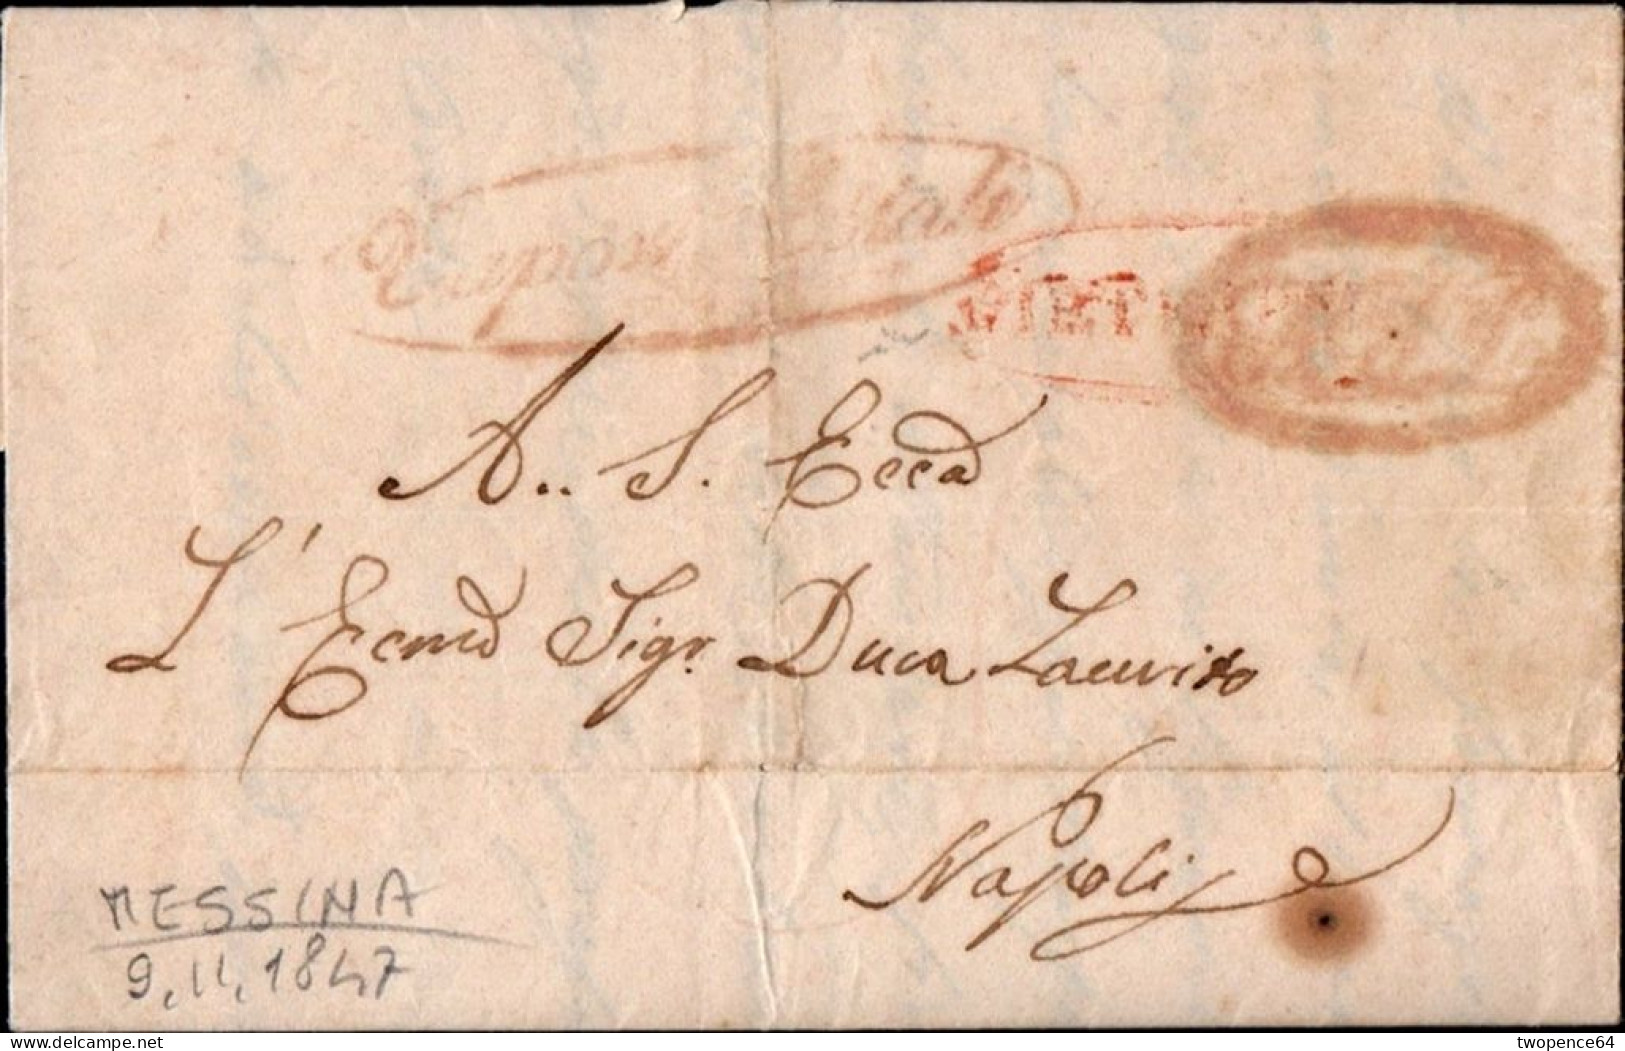 Vapori Postali
A.. S. Ecca
L'Ecmo Sigr. Duca Laurito
Napoli
MESSINA
9.11.1847
delcampe.net
twopence64